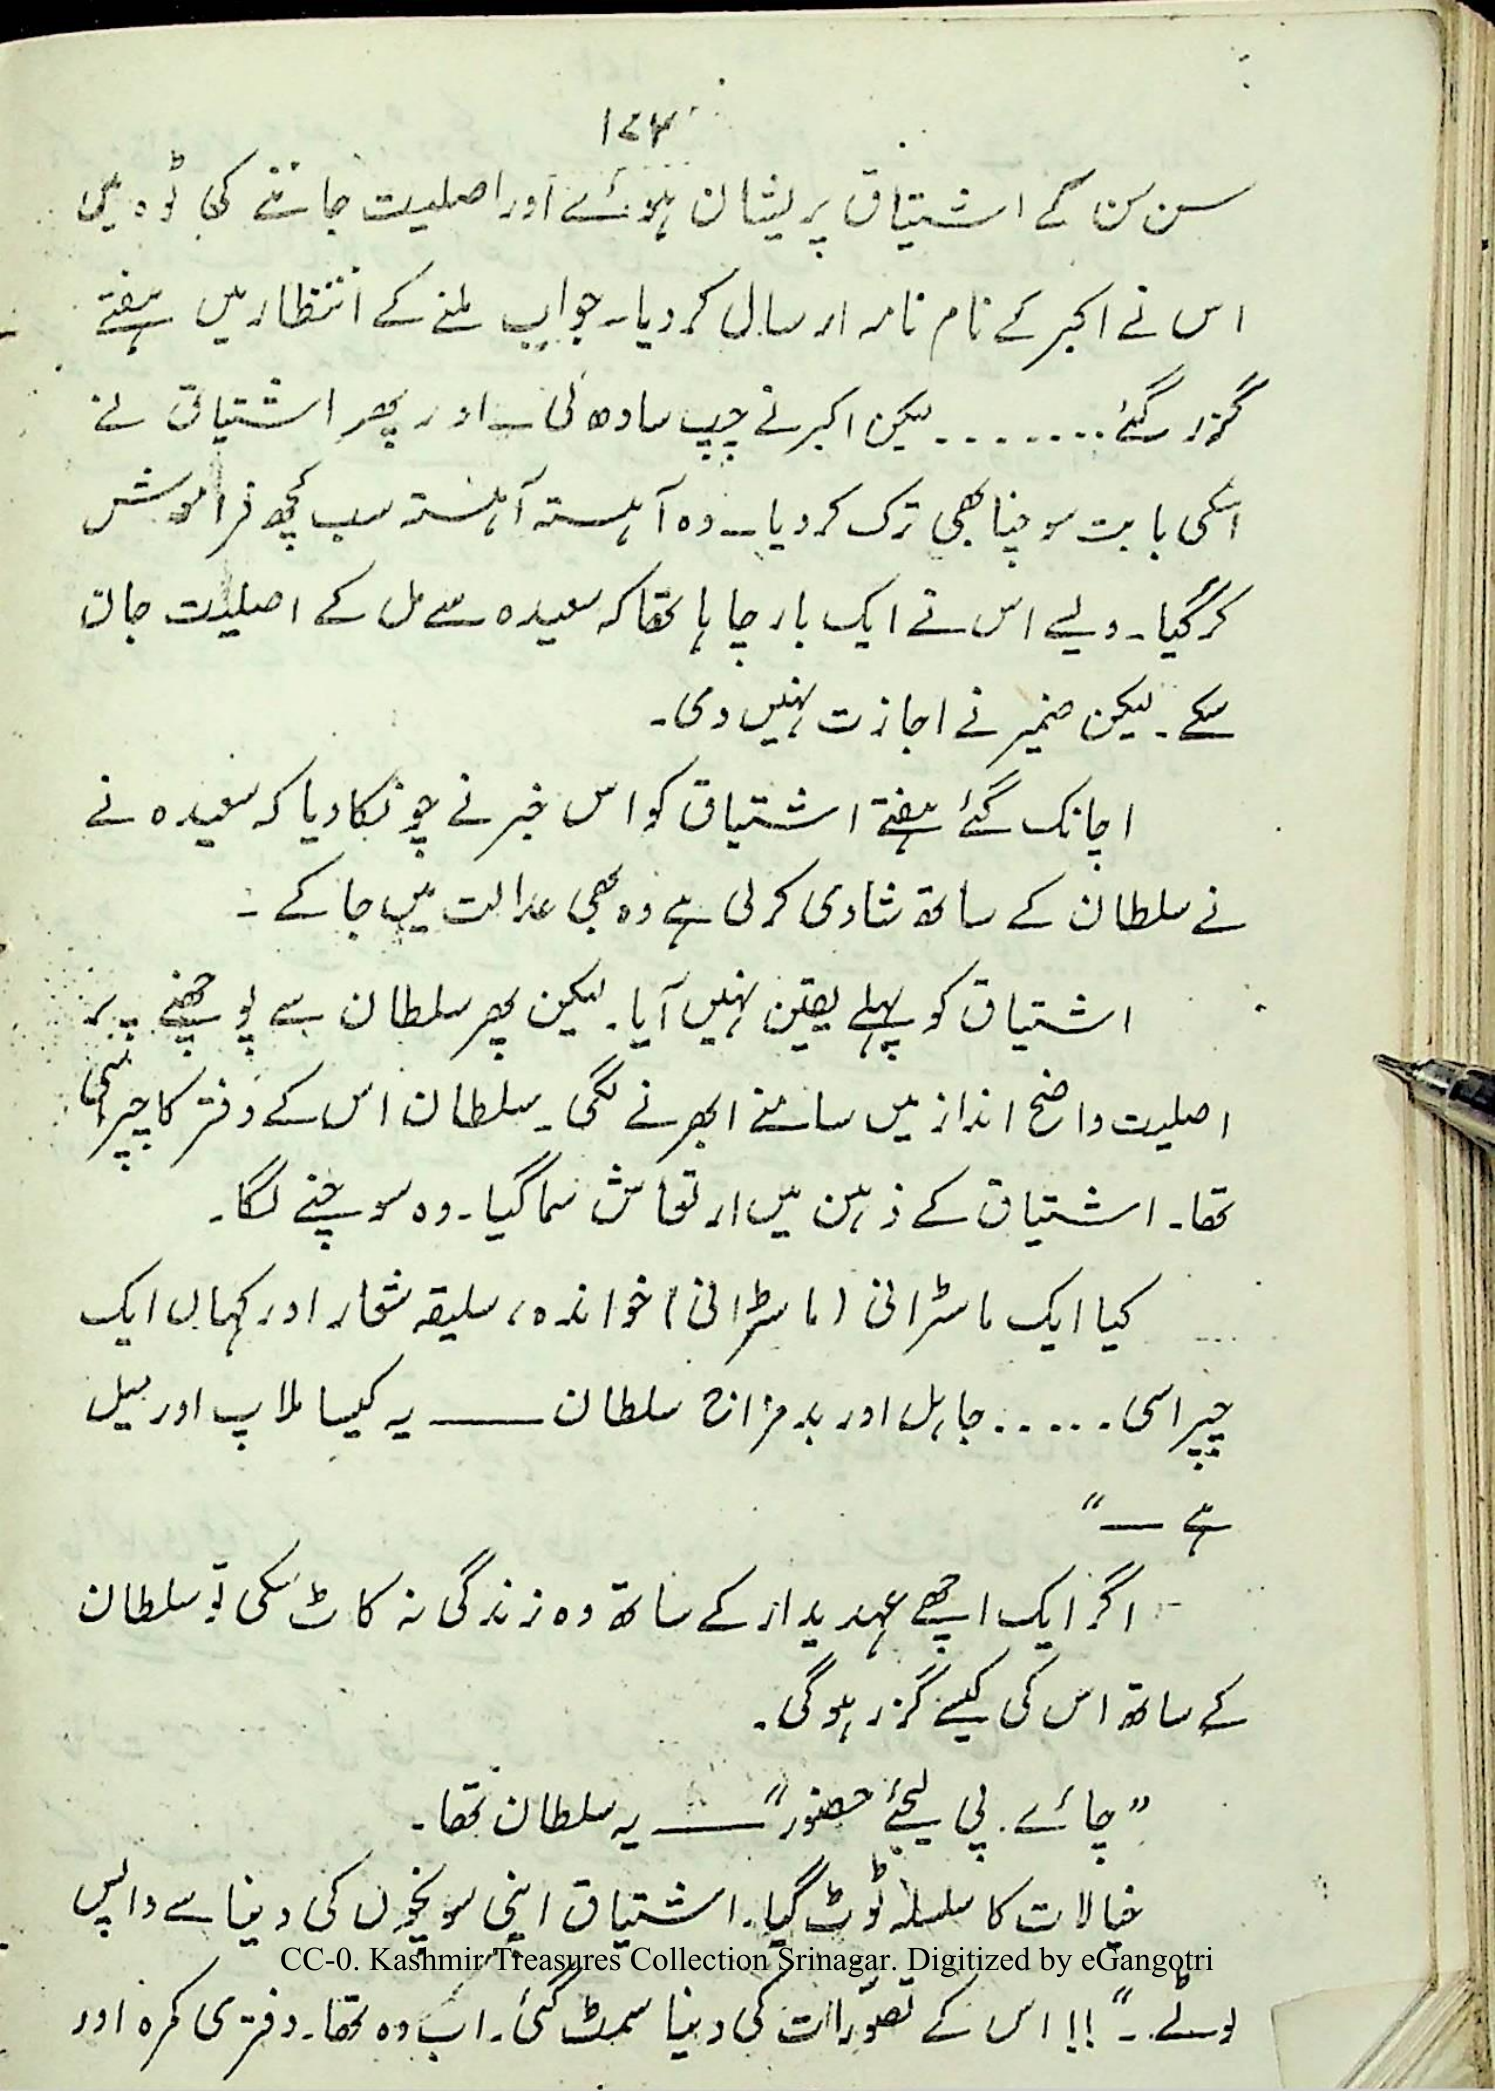 ۱۷۴
سن سن کے اشتیاق پریشان ہوئے اور اصلیت جاننے کی ٹوہ میں
اس نے اکبر کے نام نامہ ارسال کر دیا۔ جواب ملنے کے انتظار میں ہفتے
گزر گئے ........ لیکن اکبر نے چپ سادھ لی۔ اور پھر اشتیاق نے
اسکی بابت سوچنا بھی ترک کر دیا۔ وہ آہستہ آہستہ سب کچھ فراموش
کر گیا۔ ویسے اس نے ایک بار چاہا تھا کہ سعیدہ سے مل کے اصلیت جان
سکے۔ لیکن ضمیر نے اجازت نہیں دی۔
اچانک گئے ہفتے اشتیاق کو اس خبر نے چونکا دیا کہ سعیدہ نے
نے سلطان کے ساتھ شادی کر لی ہے وہ بھی عدالت میں جا کے ۔
اشتیاق کو پہلے یقین نہیں آیا۔ لیکن پھر سلطان سے پوچھنے پر
اصلیت واضح انداز میں سامنے ابھرنے لگی۔ سلطان اس کے دفتر کا چپراسی
تھا۔ اشتیاق کے ذہن میں ارتعاش سما گیا۔ وہ سوچنے لگا۔
کیا ایک ماسٹرانی (ماسٹرانی) خواندہ، سلیقہ شعار اور کہاں ایک
چپراسی ..... جاہل اور بدمزاج سلطان —— یہ کیسا ملاپ اور میل
ہے —"
اگر ایک اچھے عہدیدار کے ساتھ وہ زندگی نہ کاٹ سکی تو سلطان
کے ساتھ اس کی کیسے گزر ہوگی۔
"چائے پی لیجئے حضور" —— یہ سلطان تھا۔
خیالات کا سلسلہ ٹوٹ گیا۔ اشتیاق اپنی سوچوں کی دنیا سے واپس
CC-0. Kashmir Treasures Collection Srinagar. Digitized by eGangotri
لوٹے۔" !! اس کے تصوّرات کی دنیا سمٹ گئی۔ اب وہ تھا۔ دفتری کمرہ اور